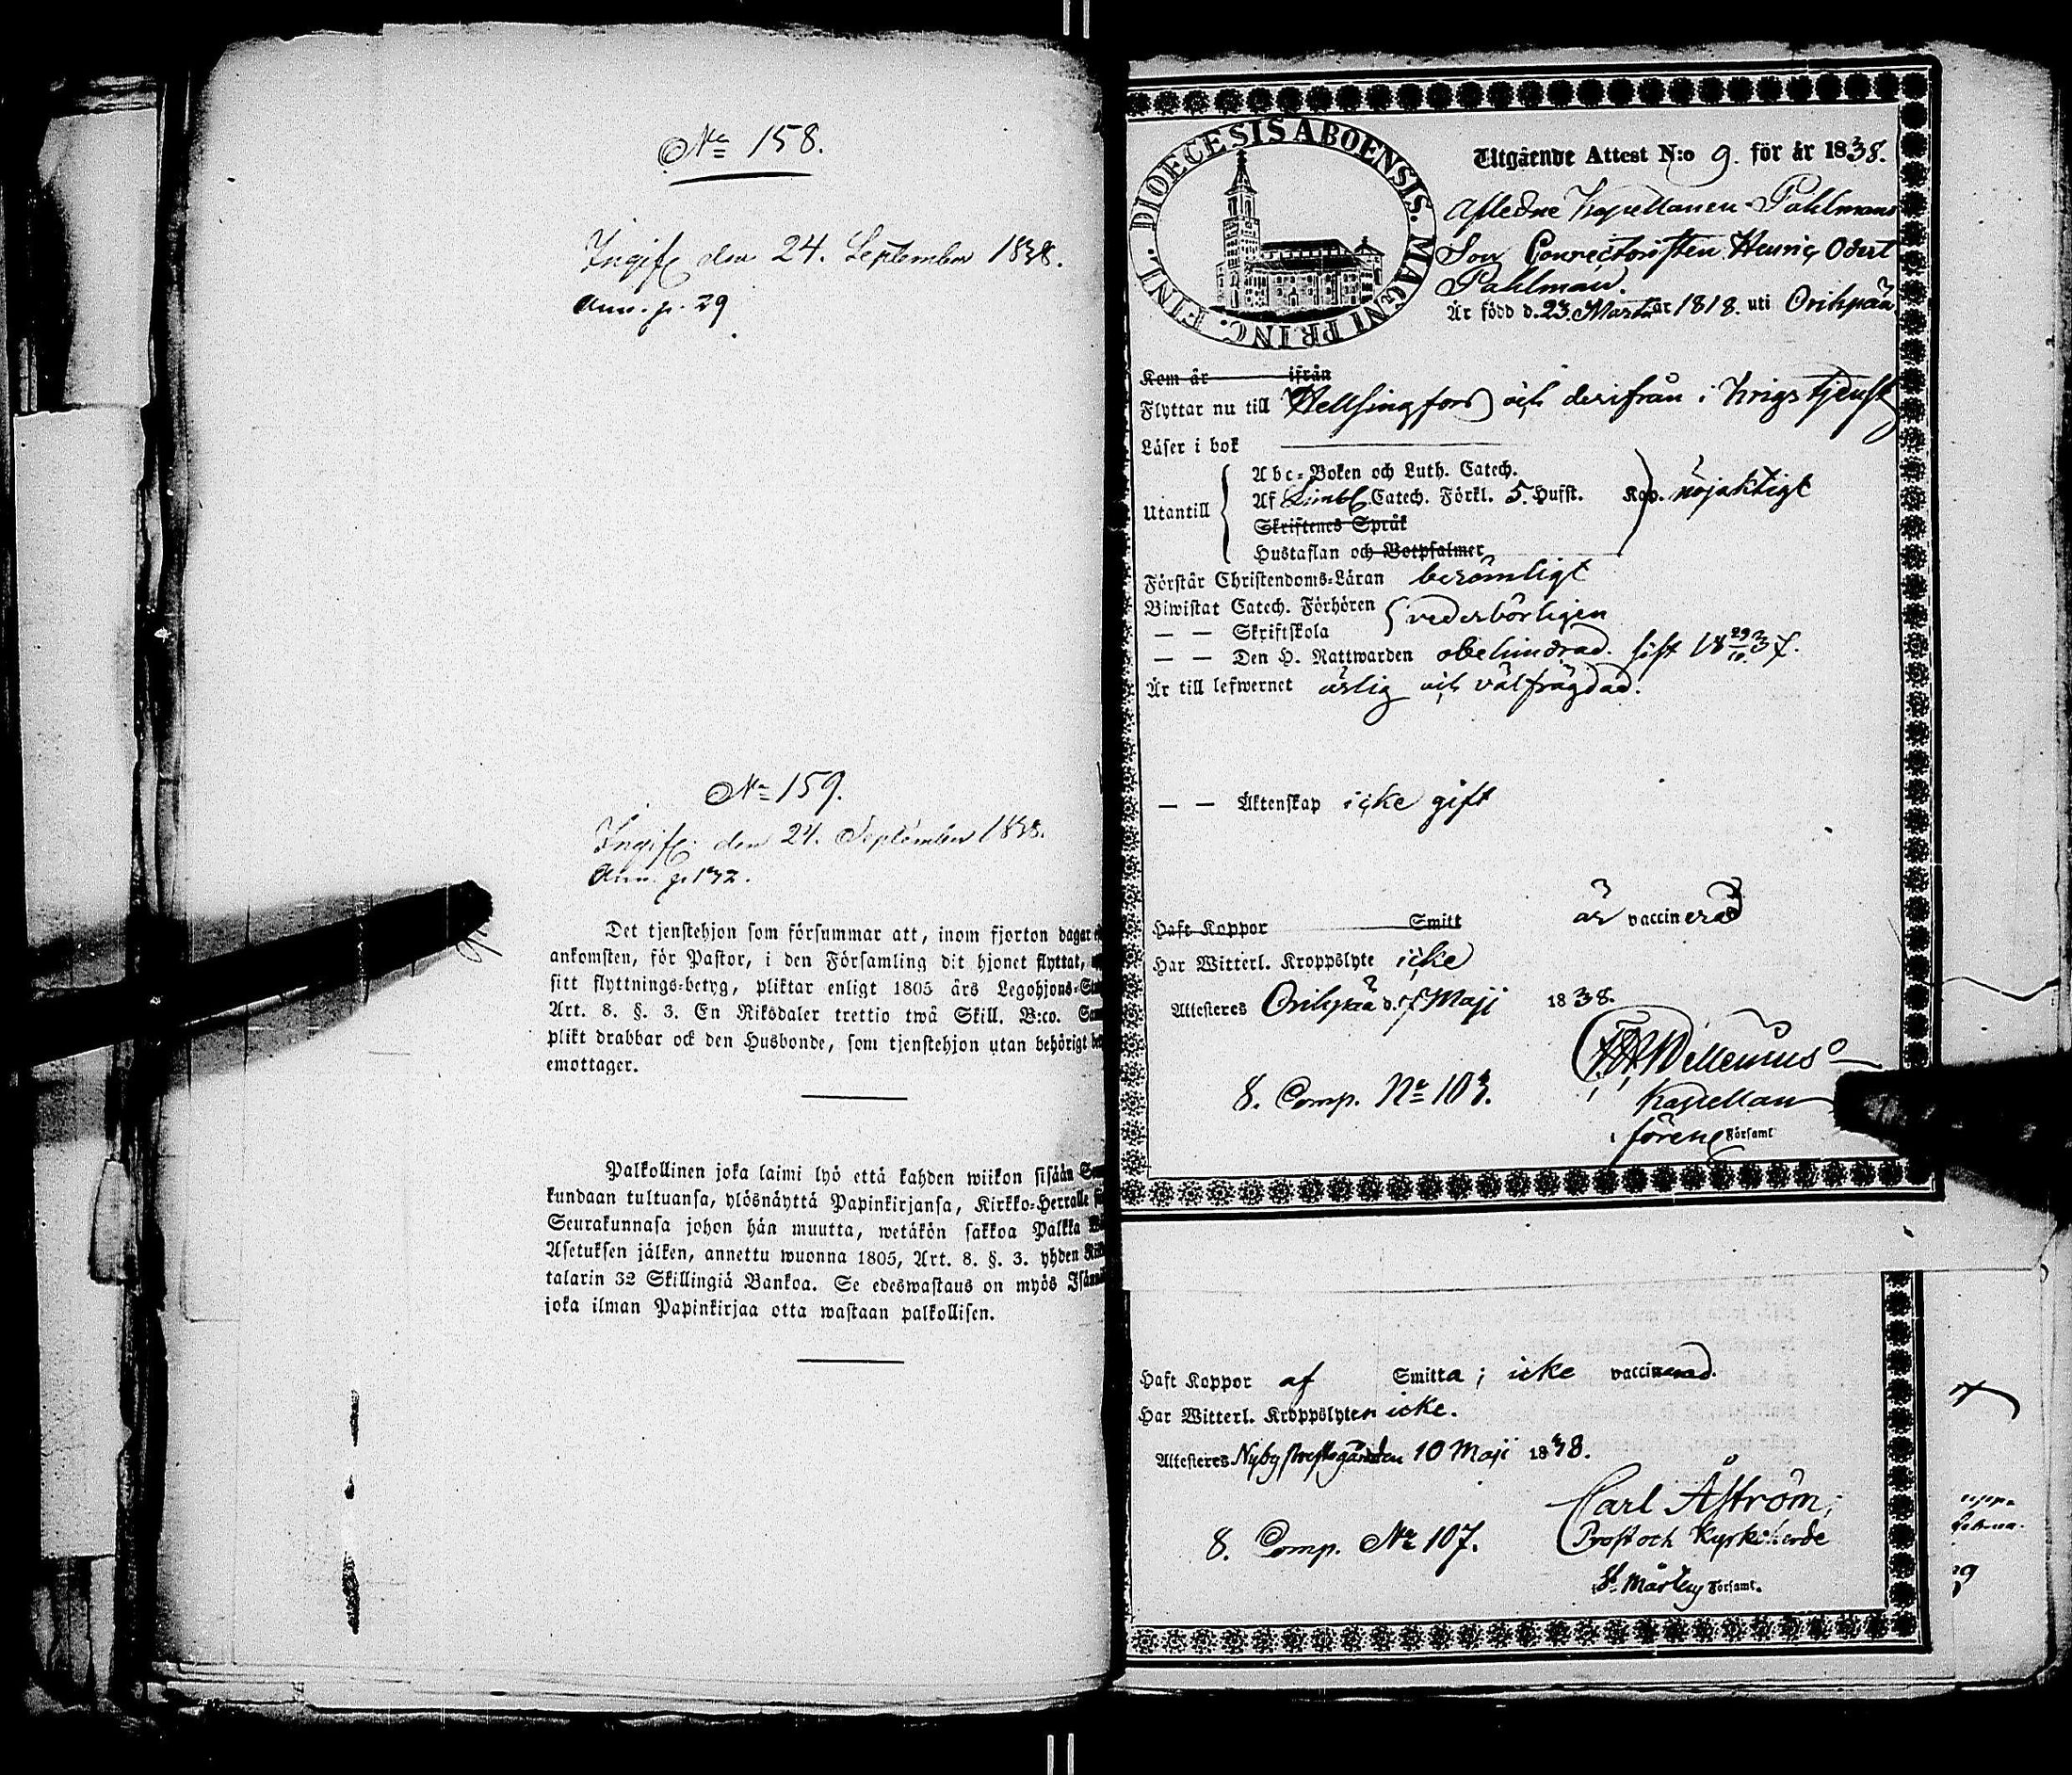 No 158.
Ingifv. den 24. September 1838.
Ann. p. 29
No 159.
Ingifv. den 24. September 1838.
Ann. p. 132.
Det tjenstehjon som försummar att, inom fjorton dagar
ankomsten, för Pastor, i den Församling dit hjonet flyttat,
sitt flyttnings-betyg, pliktar enligt 1805 års Legohjons-
Art. 8. §. 3. En Riksdaler trettio twå Skill. B:co.
plikt drabbar ock den Husbonde, som tjenstehjon utan behörigt
emottager.
Palkollinen joka laimi lyö että kahden wiikon sisään
kundaan tultuansa, ylösnäyttä Papinkirjansa, Kirkko-Herralle
Seurakunnasa johon hän muutta, wetäkön sakkoa Palkka
Asetuksen jälken, annettu wuonna 1805, Art. 8. §. 3. yhden
talarin 32 Skillingiä Bankoa. Se edeswastaus on myös
joka ilman Papinkirjaa otta wastaan palkollisen.
DIOECESIS ABOENSIS. MAGNI PRINC. FINL.
Utgående Attest N:o 9. för år 1838.
Afledne Kapellanen Pahlmans
Son Connectoristen Henric Odert
Pahlman.
Är född d. 23. Martii år 1818. uti Orihpää
Kom år ifrån
Flyttar nu till Hellsingfors och derifrån i Krigstjenst
Läser i bok
Abc-Boken och Luth. Catech.
Utantill Af Limbl. Catech. Förkl. 5. Hufst. Kap. nöjaktigt
Skriftenes Språk
Hustaflan och Botpsalmer
Förstår Christendoms-Läran berömligt
Biwistat Catech. Förhören vederbörligen
— — Skriftskola
— — Den H. Nattwarden obehindrad. sist 18 29/10 37.
Är till lefwernet ärlig och välfrägdad.
— — Äktenskap icke gift
Haft Koppor Smitt är vaccinerad
Har Witterl. Kroppslyte icke
Attesteres Orihpää d. 7 Maji 1838.
Wellenius
8. Comp. No 103. Kapellan
i förene Församl
Haft Koppor af Smitta; icke vaccinerad.
Har Witterl. Kroppslyten icke.
Attesteres Nyby prestegården 10 Maji 1838.
Carl Åström,
8. Comp. No 107. Prost och Kyrkoherde
St. Mårtens Församl.